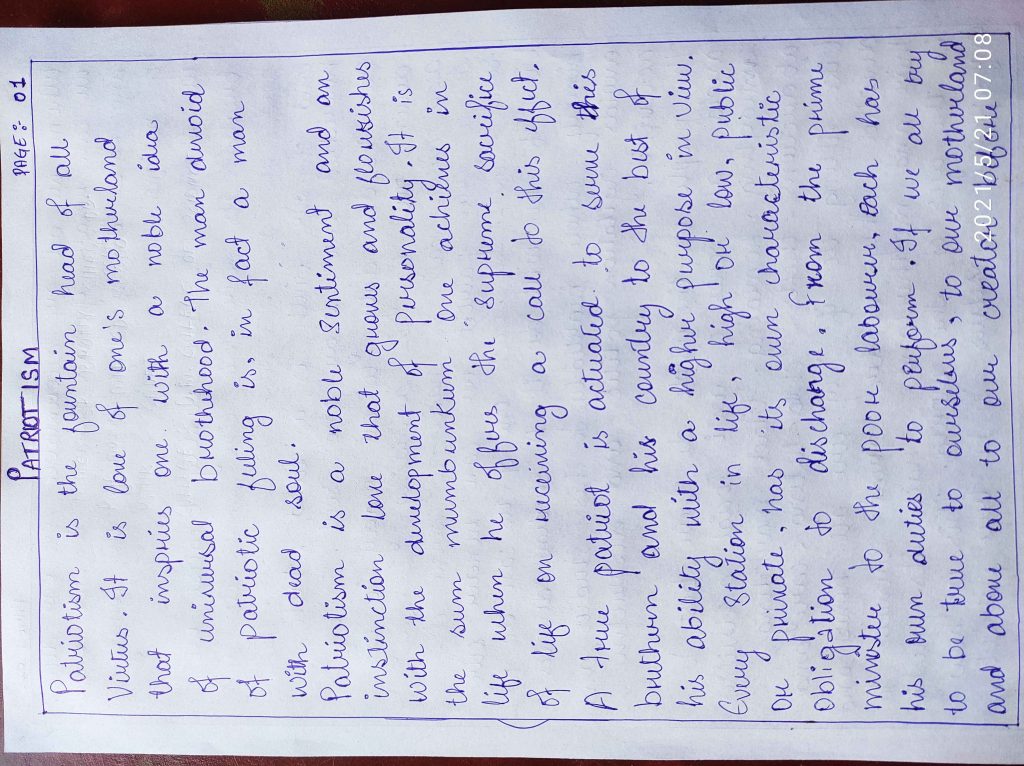 PAGE: 01
PATRIOTISM
Patriotism is the fountain head of all
Virtues. It is love of one's motherland
that inspries one with a noble idea
of universal brotherhood. The man devoid
of patriotic feeling is, in fact a man
with dead soul.
Patriotism is a noble sentiment and an
instinction love that grows and flourishes
with the development of personality. It is
the sum one achieves in
life when he offers the supreme sacrific
of life on receiving a call to this effect.
A true patriot is actuated to some this
brethren and his country to the best of
his ability with a higher purpose in view.
Every Station in life, high or low, public
or private, has its own characteristic
obligation to discharge. From the prime
minister to the poor labourer, each has
his own duties to perform. If we all try
to be true to ourselves, to our motherland
and above all to our creator before
2021/5/21 07:08